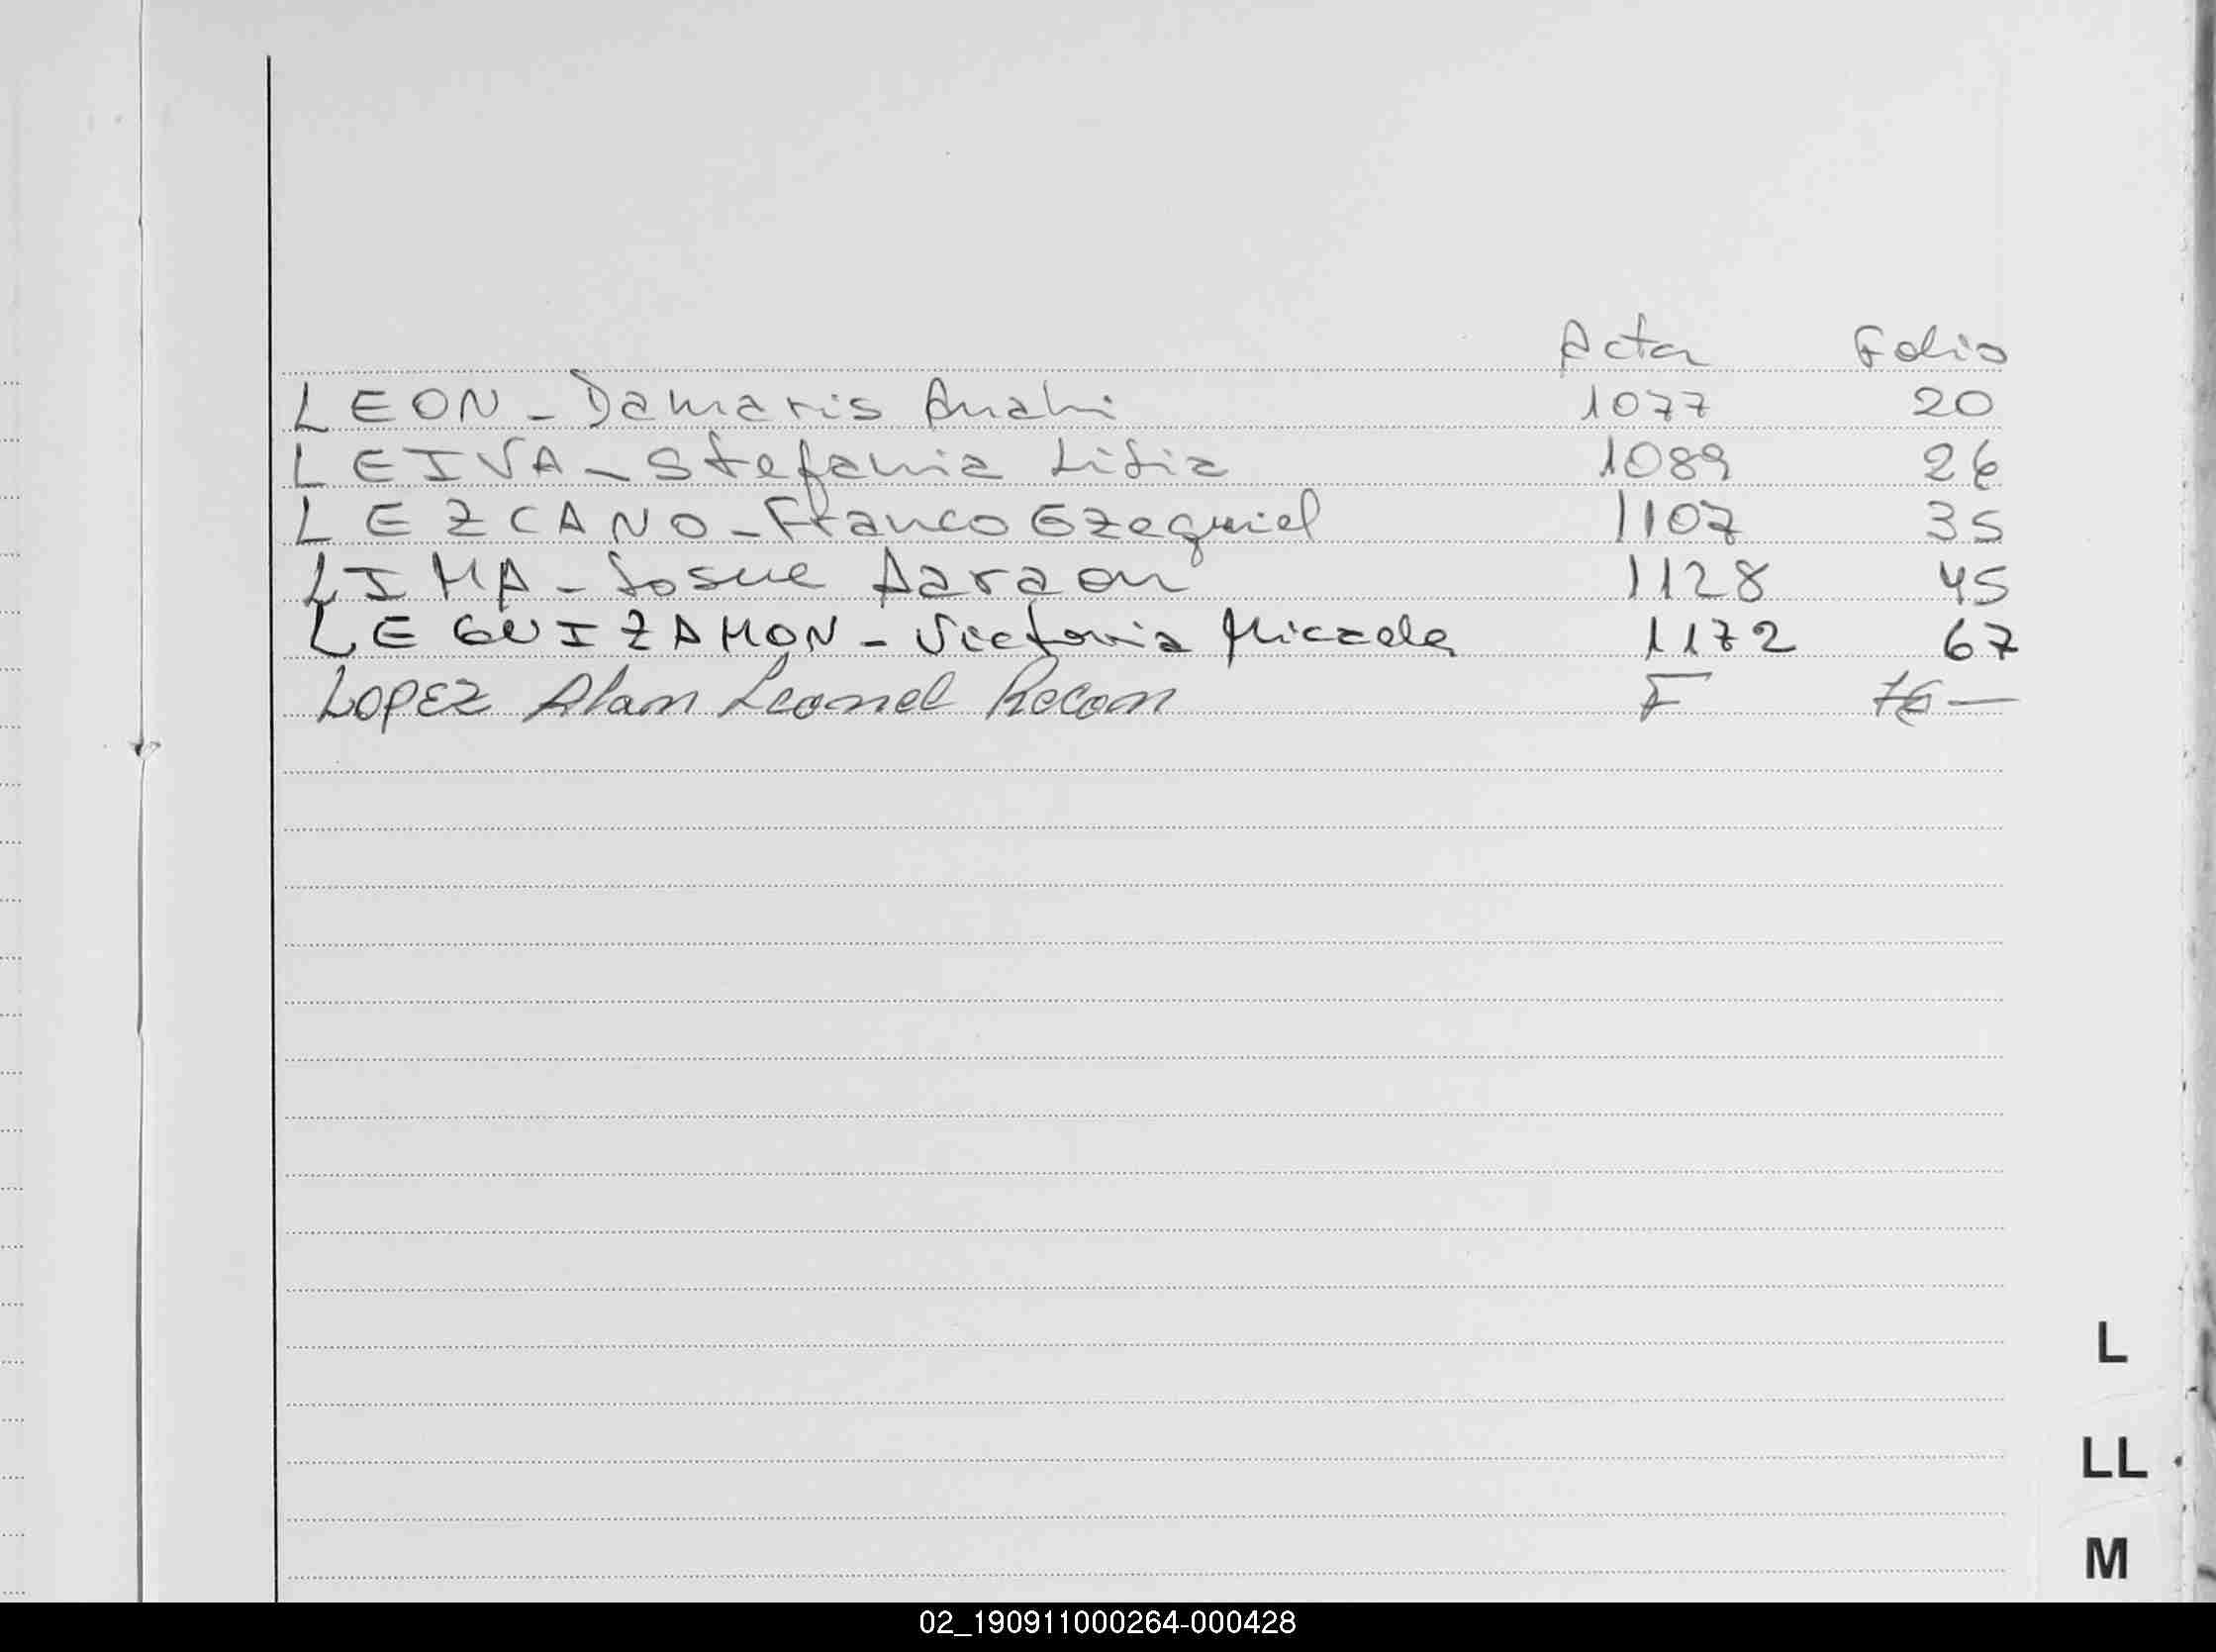 Acta Folio
LEON - Damaris Anahi 1077 20
LEIVA - Stefania Lidia 1089 26
LEZCANO - Franco Ezequiel 1107 35
LIMA - Josue Aaraon 1128 45
LEGUIZAMON - Victoria Micaela 1172 67
LOPEZ Alan Leonel Recon F 76 —
L
LL
M
02_190911000264-000428